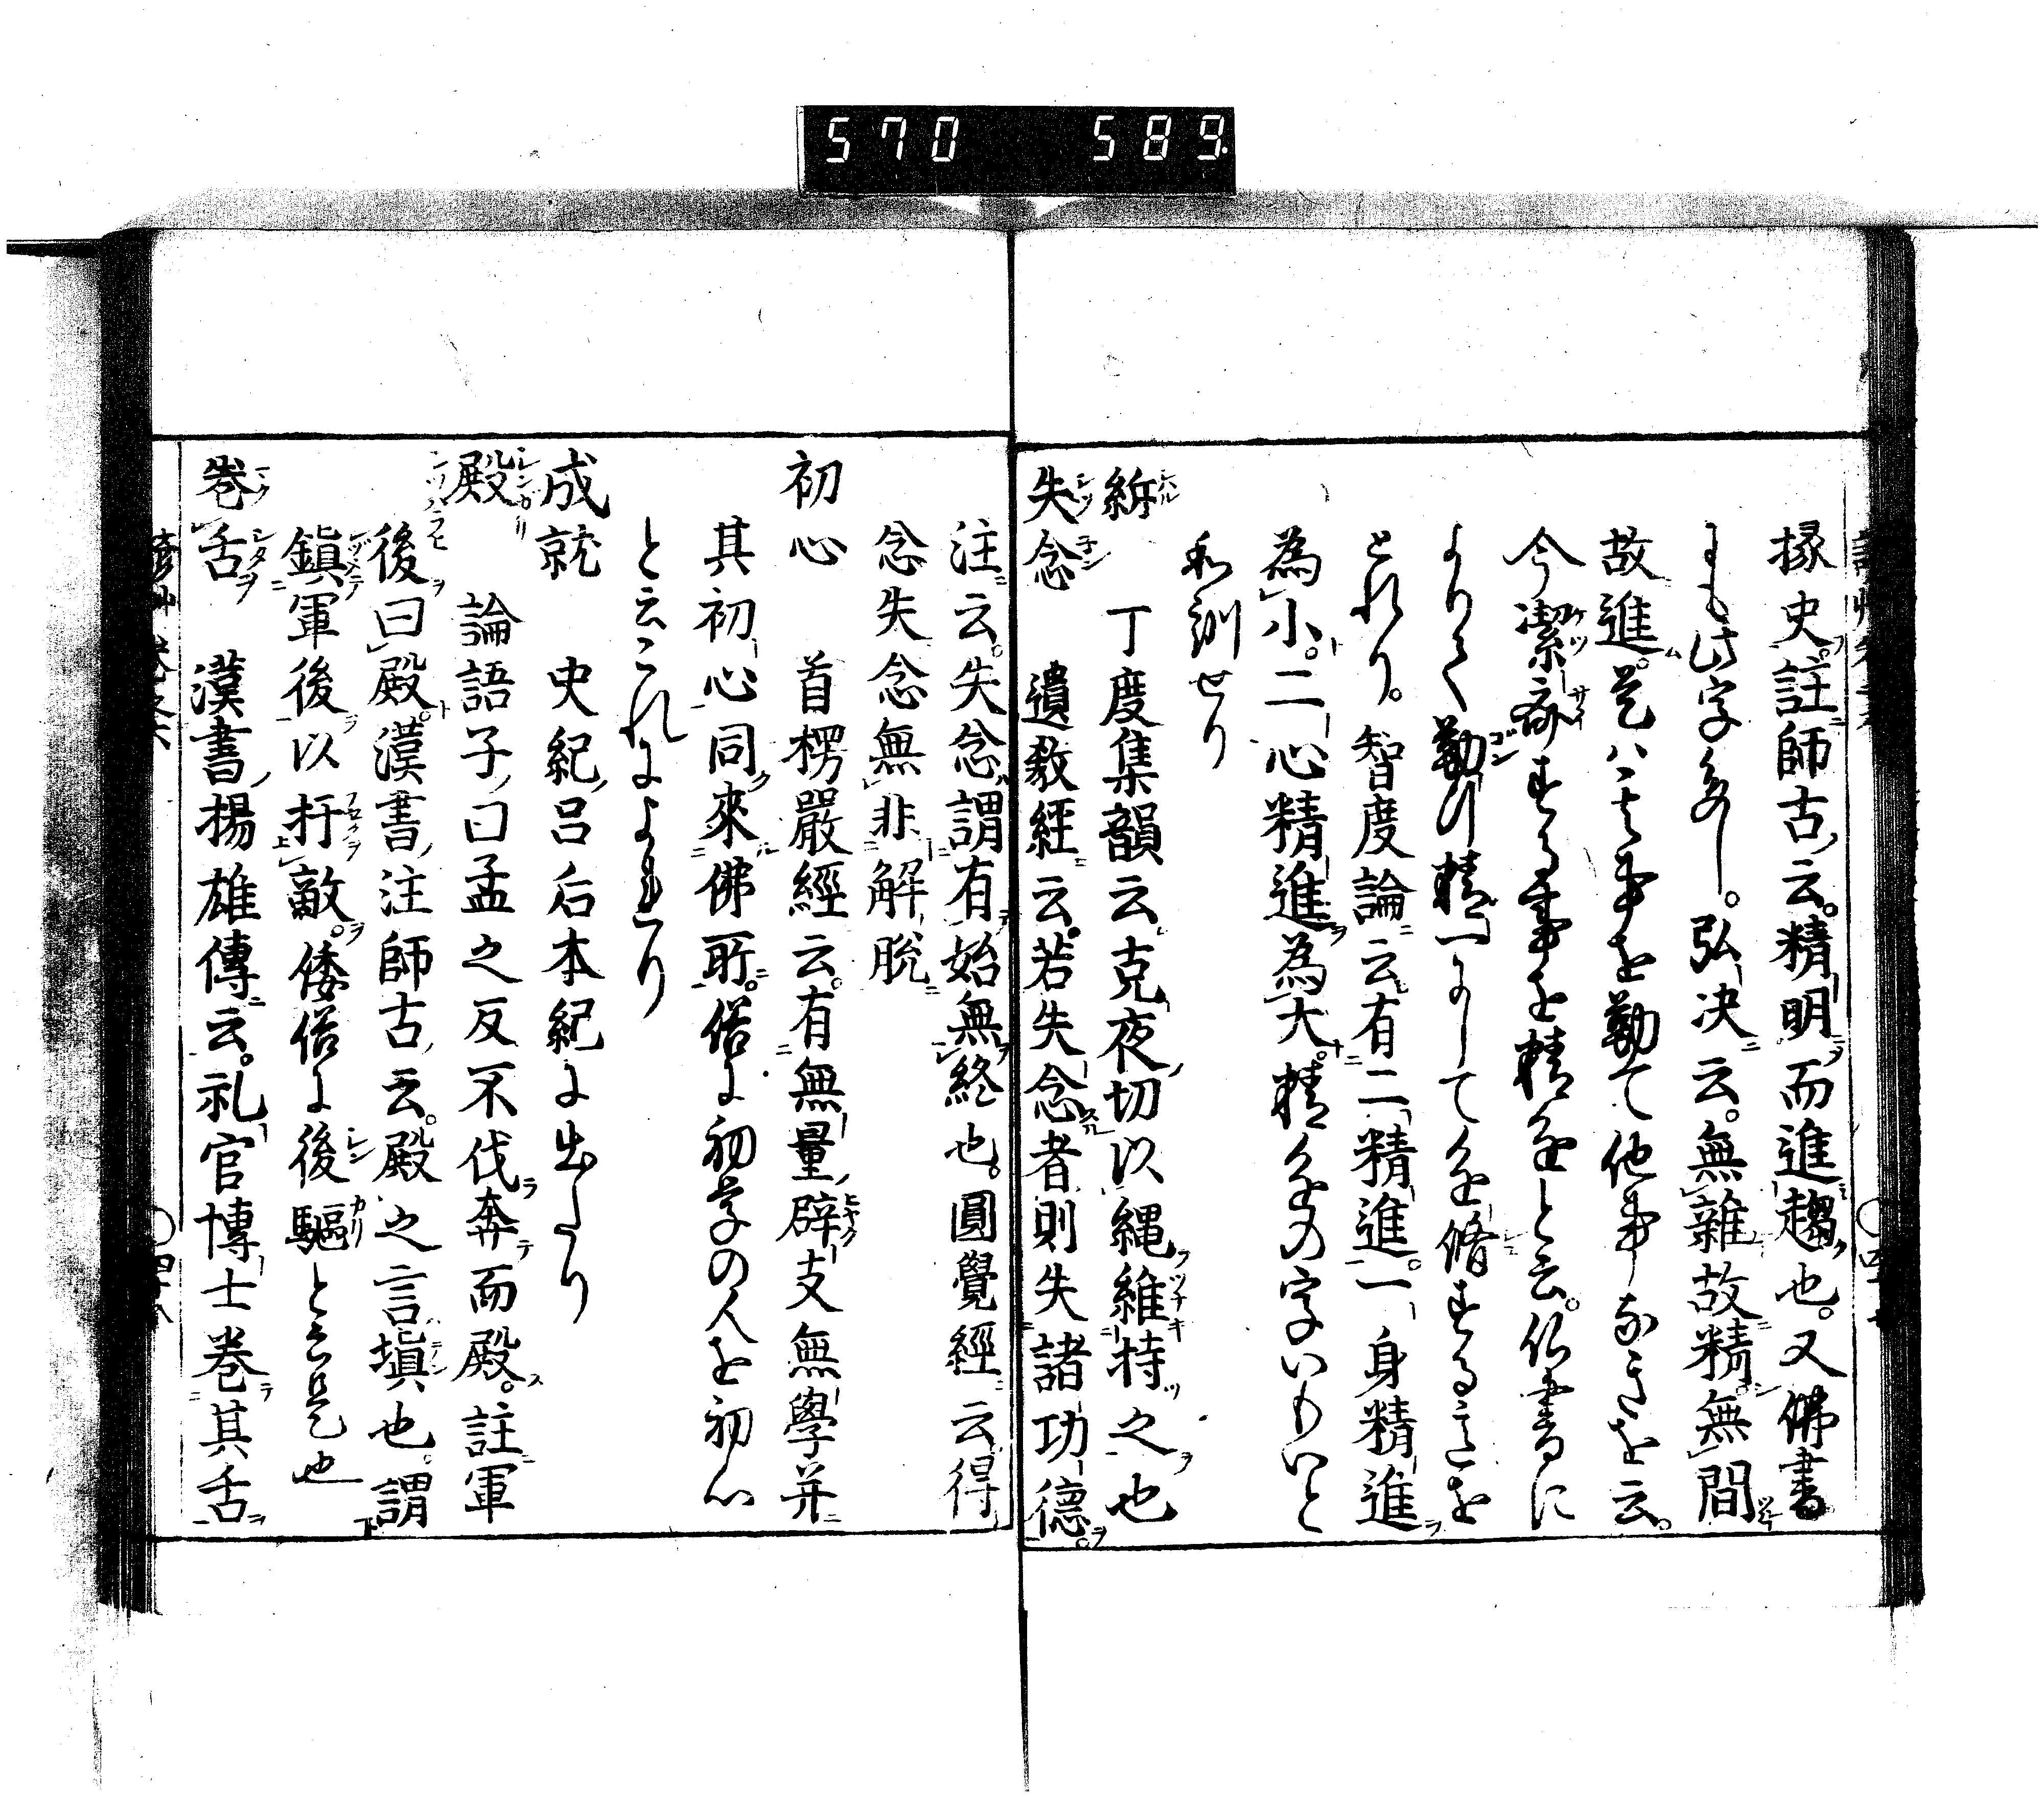 570 589
掾史。註師古云。精明而進趨也。又佛書
にも此字多し。弘决云。無雜故精無間
故進。是ハ其事を勤て他事なきを云。
今潔斎する事を精進と云。仏書に
よりて勤行精一にして進脩する意を
とれり。智度論云有二精進。一身精進
為小。二心精進為大。精進の字いもいと
和訓せり
絎 丁度集韻云克夜切以縄維持之也
失念 遺教經云。若失念者則失諸功德。
注云。失念謂有始無終也。圓覺經云得
念失念無非解脫
初心 首楞嚴經云。有無量辟支無學并
其初心同來佛所。俗に初学の人を初心
と云これによれり
成就 史紀呂后本紀に出たり
殿 論語子曰孟之反不伐奔而殿。註軍
後曰殿。漢書注師古云。殿之言塡也。謂
鎭軍後以扞敵。倭俗に後驅と云是也
卷舌 漢書揚雄傳云。礼官博士卷其舌